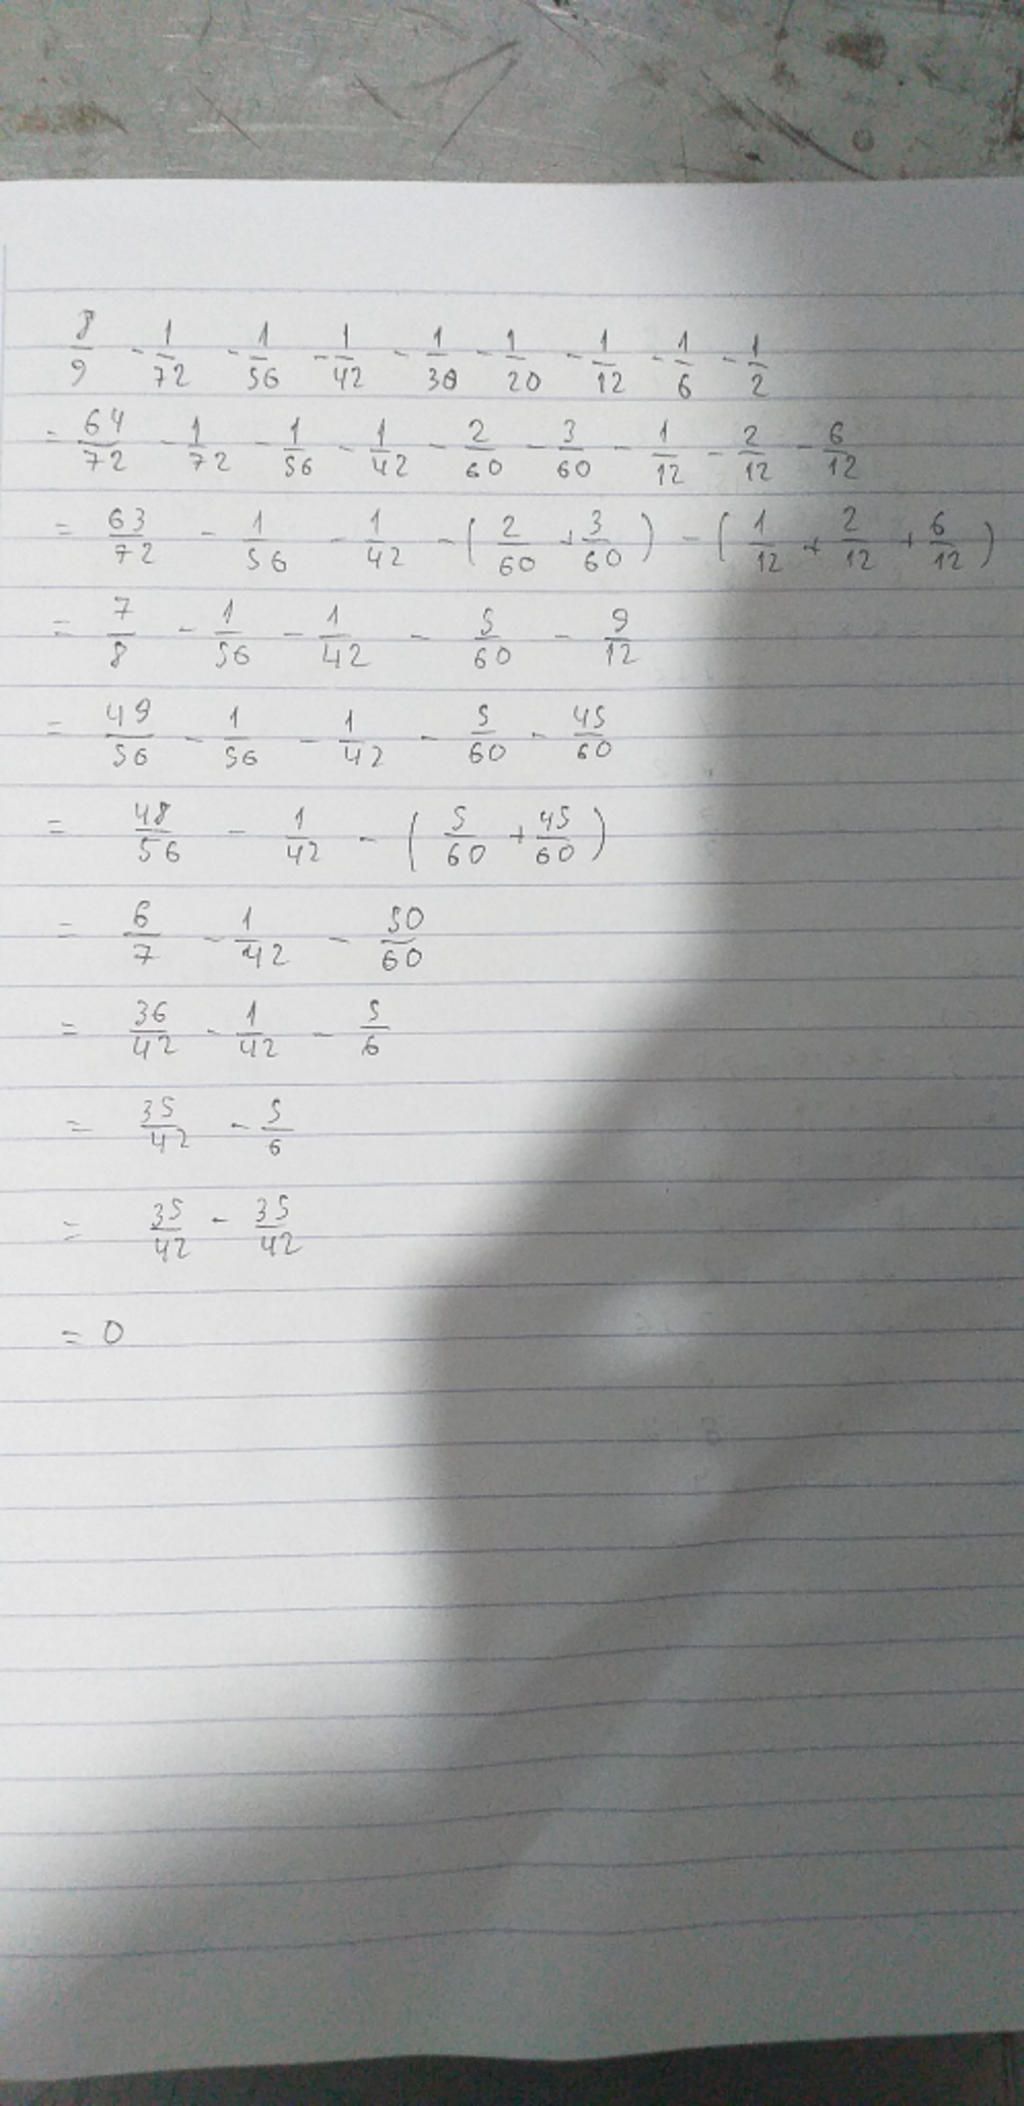 8/9 - 1/72 - 1/56 - 1/42 - 1/30 - 1/20 - 1/12 - 1/6 - 1/2
= 64/72 - 1/72 - 1/56 - 1/42 - 2/60 - 3/60 - 1/12 - 2/12 - 6/12
= 63/72 - 1/56 - 1/42 - (2/60 + 3/60) - (1/12 + 2/12 + 6/12)
= 7/8 - 1/56 - 1/42 - 5/60 - 9/12
= 49/56 - 1/56 - 1/42 - 5/60 - 45/60
= 48/56 - 1/42 - (5/60 + 45/60)
= 6/7 - 1/42 - 50/60
= 36/42 - 1/42 - 5/6
= 35/42 - 5/6
= 35/42 - 35/42
= 0